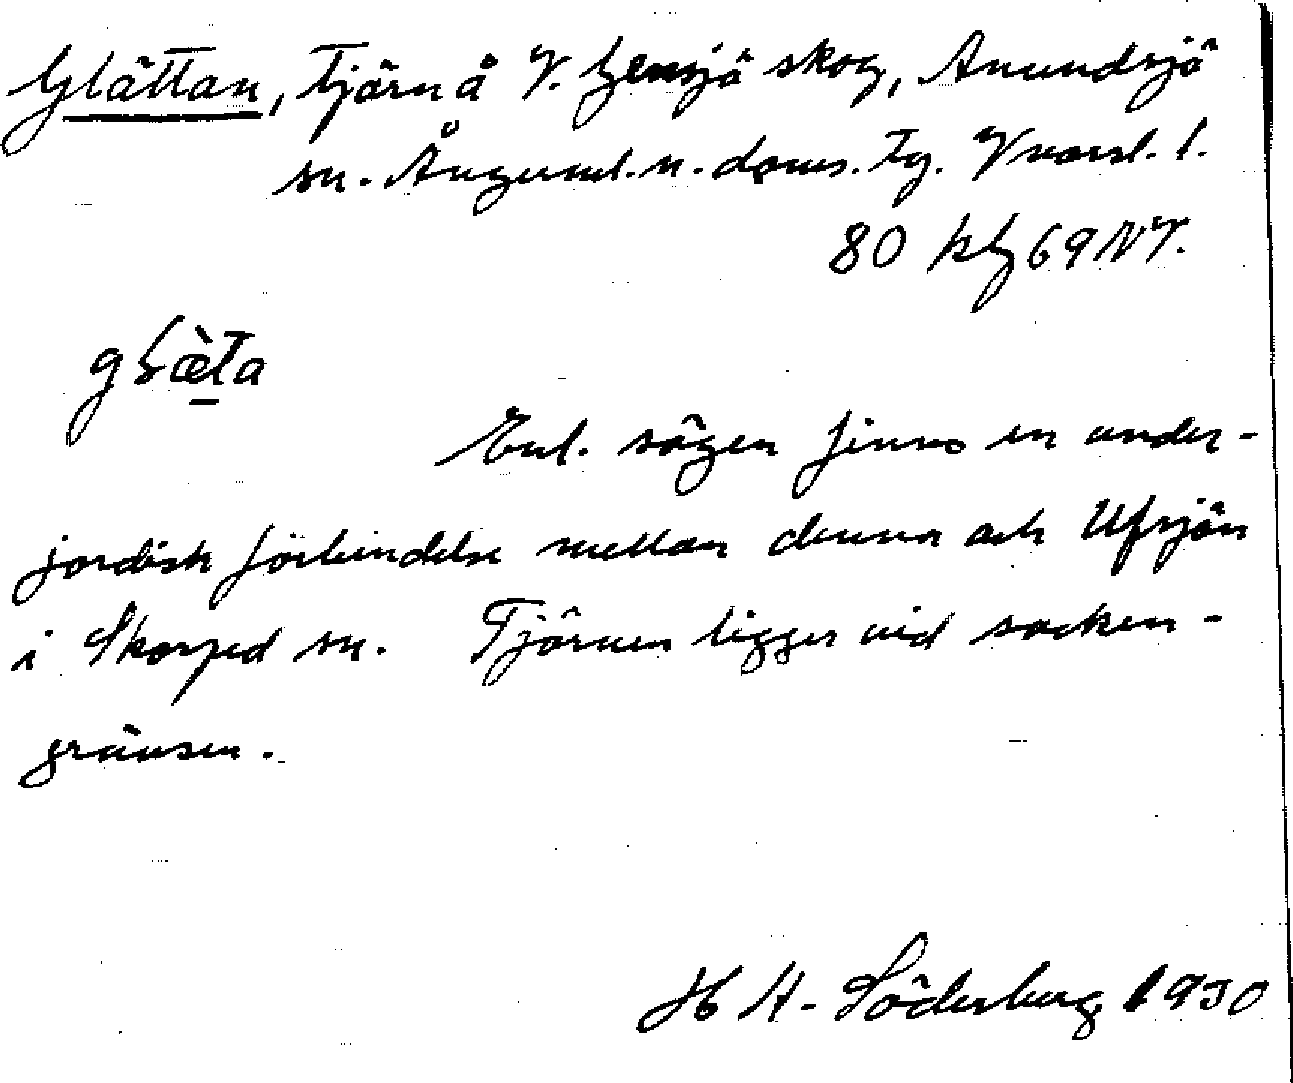 Glättan, Tjärn å V. Gensjö skog, Anundsjö
sn. Ångerml. n. doms. Tg. Vnorrl. l.
80 kbl 69 NV.
gɽæ̀ta
Enl. sägen finns en under-
jordisk förbindelse mellan denna och Ufsjön
i Skorped sn. Tjärnen ligger vid socken-
gränsen.
H A. Söderberg 1930